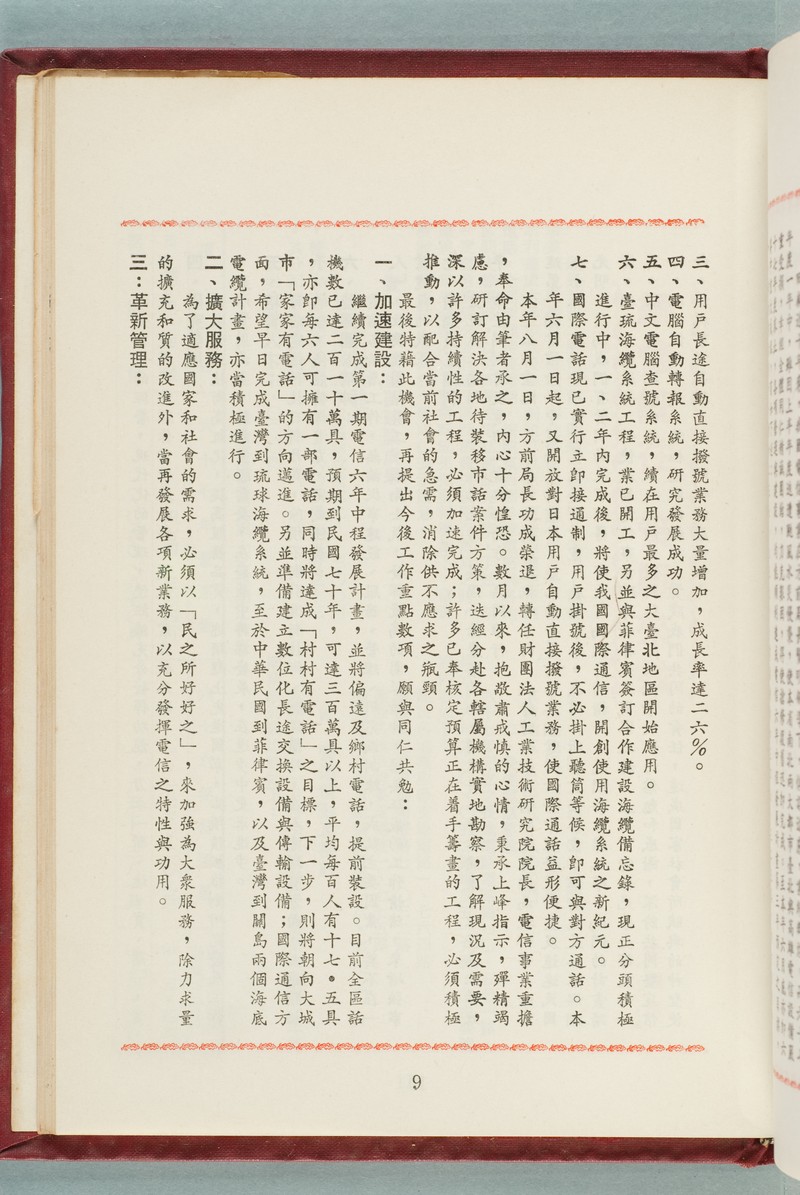 三、用戶長途自動直接撥號業務大量增加，成長率達二六％。
四、電腦自動轉報系統，研究發展成功。
五、中文電腦查號系統，續在用戶最多之大臺北地區開始應用。
六、臺琉海纜系統工程，業已開工，另並與菲律賓簽訂合作建設海纜備忘錄，現正分頭積極
進行中，一、二年內完成後，將使我國國際通信，開創使用海纜系統之新紀元。
七、國際電話現已實行立即接通制，用戶掛號後，不必掛上聽筒等候，即可與對方通話。本
年六月一日起，又開放對日本用戶自動直接撥號業務，使國際通話益形便捷。
本年八月一日，方前局長功成榮退，轉任財團法人工業技術研究院院長，電信事業重擔
，奉命由筆者承之，內心十分惶恐。數月以來，抱敬肅戒慎的心情，秉承上峰指示，殫精竭
慮，研訂解決各地待裝移市話案件方策，迭經分赴各轄屬機構實地勘察，了解現況及需要，
深以許多持續性的工程，必須加速完成；許多已奉核定預算正在着手籌畫的工程，必須積極
推動，以配合當前社會的急需，消除供不應求之瓶頸。
最後特藉此機會，再提出今後工作重點數項，願與同仁共勉：
一、加速建設：
繼續完成第一期電信六年中程發展計畫，並將偏遠及鄉村電話，提前裝設。目前全區話
機數已達二百一十萬具，預期到民國七十年，可達三百萬具以上，平均每百人有十七．五具
，亦即每六人可擁有一部電話，同時將達成「村村有電話」之目標，下一步，則將朝向大城
市「家家有電話」的方向邁進。另並準備建立數位化長途交換設備與傳輸設備；國際通信方
面，希望早日完成臺灣到琉球海纜系統，至於中華民國到菲律賓，以及臺灣到關島兩個海底
電纜計畫，亦當積極進行。
二、擴大服務：
為了適應國家和社會的需求，必須以「民之所好好之」，來加強為大衆服務，除力求量
的擴充和質的改進外，當再發展各項新業務，以充分發揮電信之特性與功用。
三：革新管理：
9